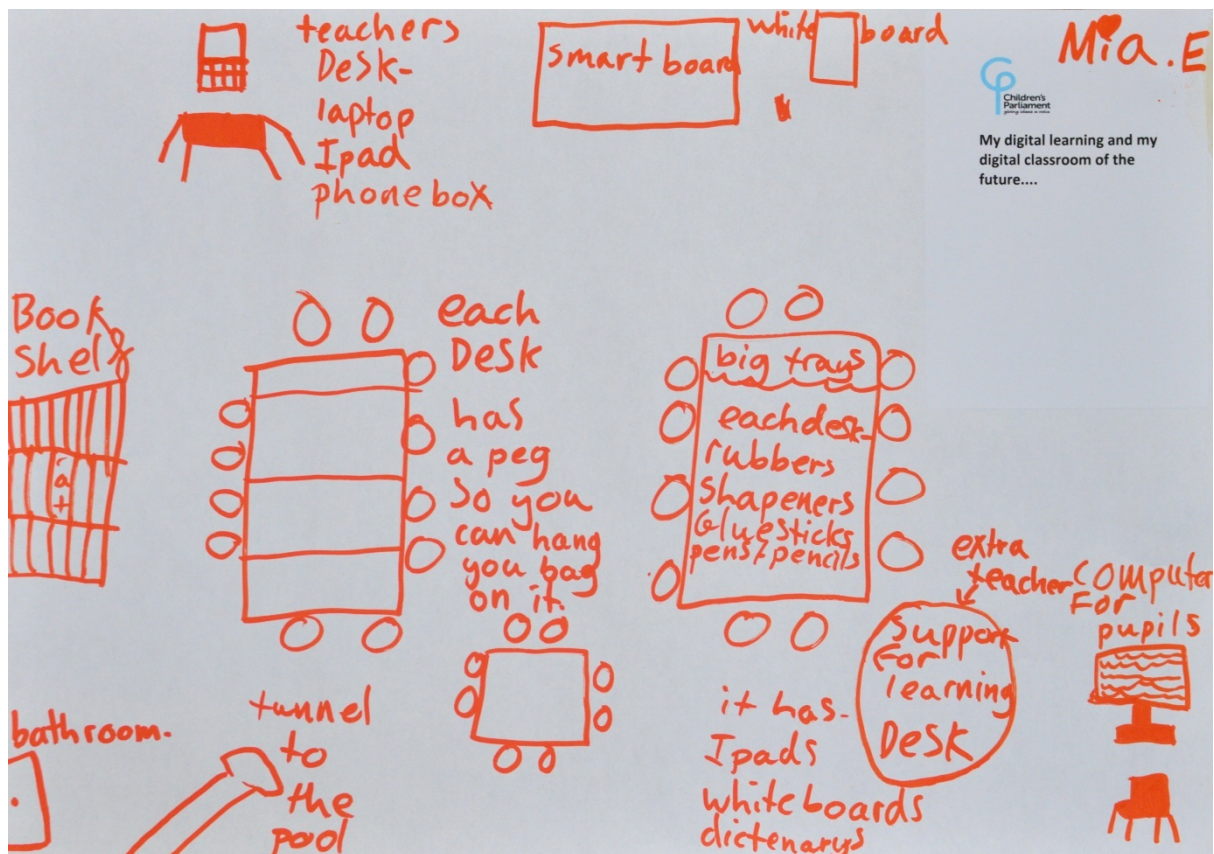 teachers
DeSk-
laptop
Ipad
phone box
smart board
white board
Mia.E
Children's
Parliament
giving ideas a voice
My digital learning and my
digital classroom of the
future....
Book
Shelf
each
DeSk
has
a peg
So you
can hang
you bag
on it.
big trays
each desk-
rubbers
Shapeners
Gluesticks
pens+pencils
extra
teacher
Support
For
learning
DeSK
computer
For
pupils
bathroom.
tunnel
to
the
pool
it has-
Ipads
whiteboards
dictenarys